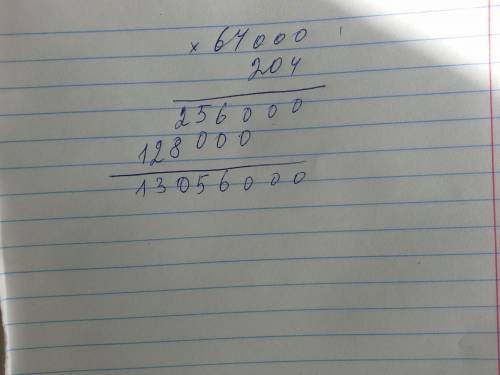 × 64000
204
256000
128000
13056000